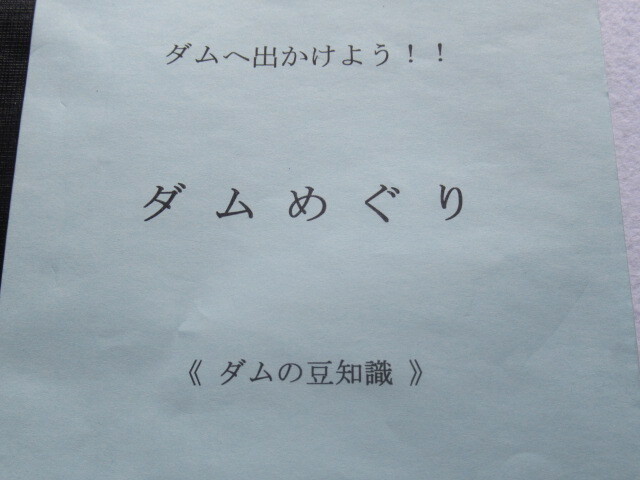 ダムへ出かけよう！！
ダムめぐり
《 ダムの豆知識 》